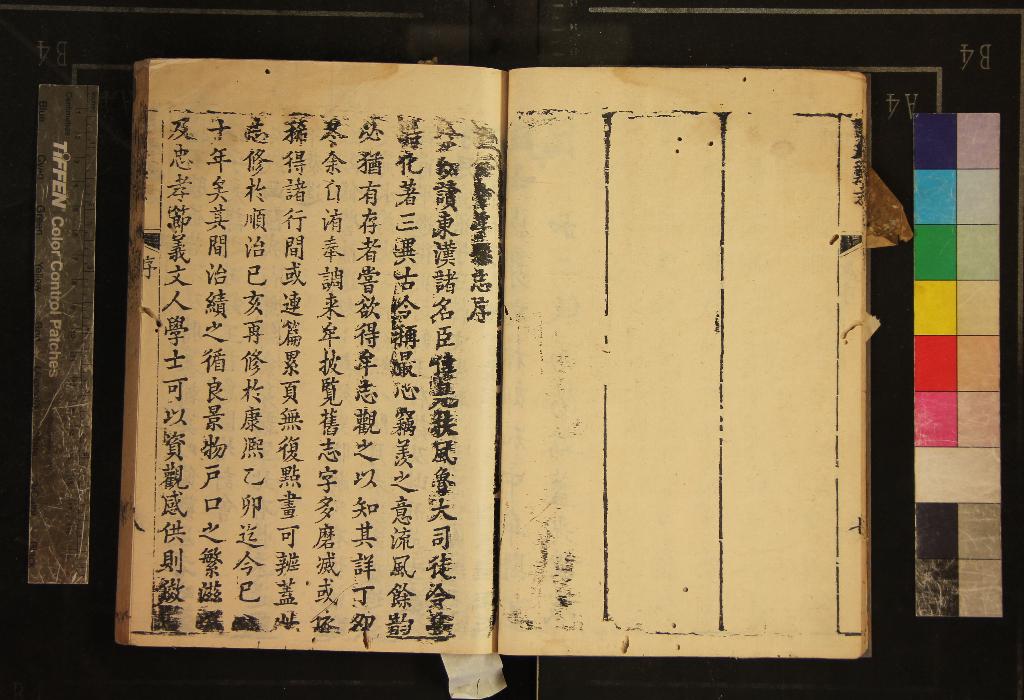 志序
讀東漢諸名臣傳至扶風魯大司徒令
花著三異古今稱最心竊羨之意流風餘韵
必猶有存者嘗欲得牟志觀之以知其詳丁卯
冬余自洧奉調来牟披覧舊志字多磨滅或
獲得諸行間或連篇累頁無復點畫可辨蓋此
志修於順治己亥再修於康熈乙卯迄今巳
十年矣其間治績之循良景物戸口之繁滋
及忠孝節義文人學士可以資觀感供則傚
序
八
B4
B4
A4
TIFFEN Color Control Patches